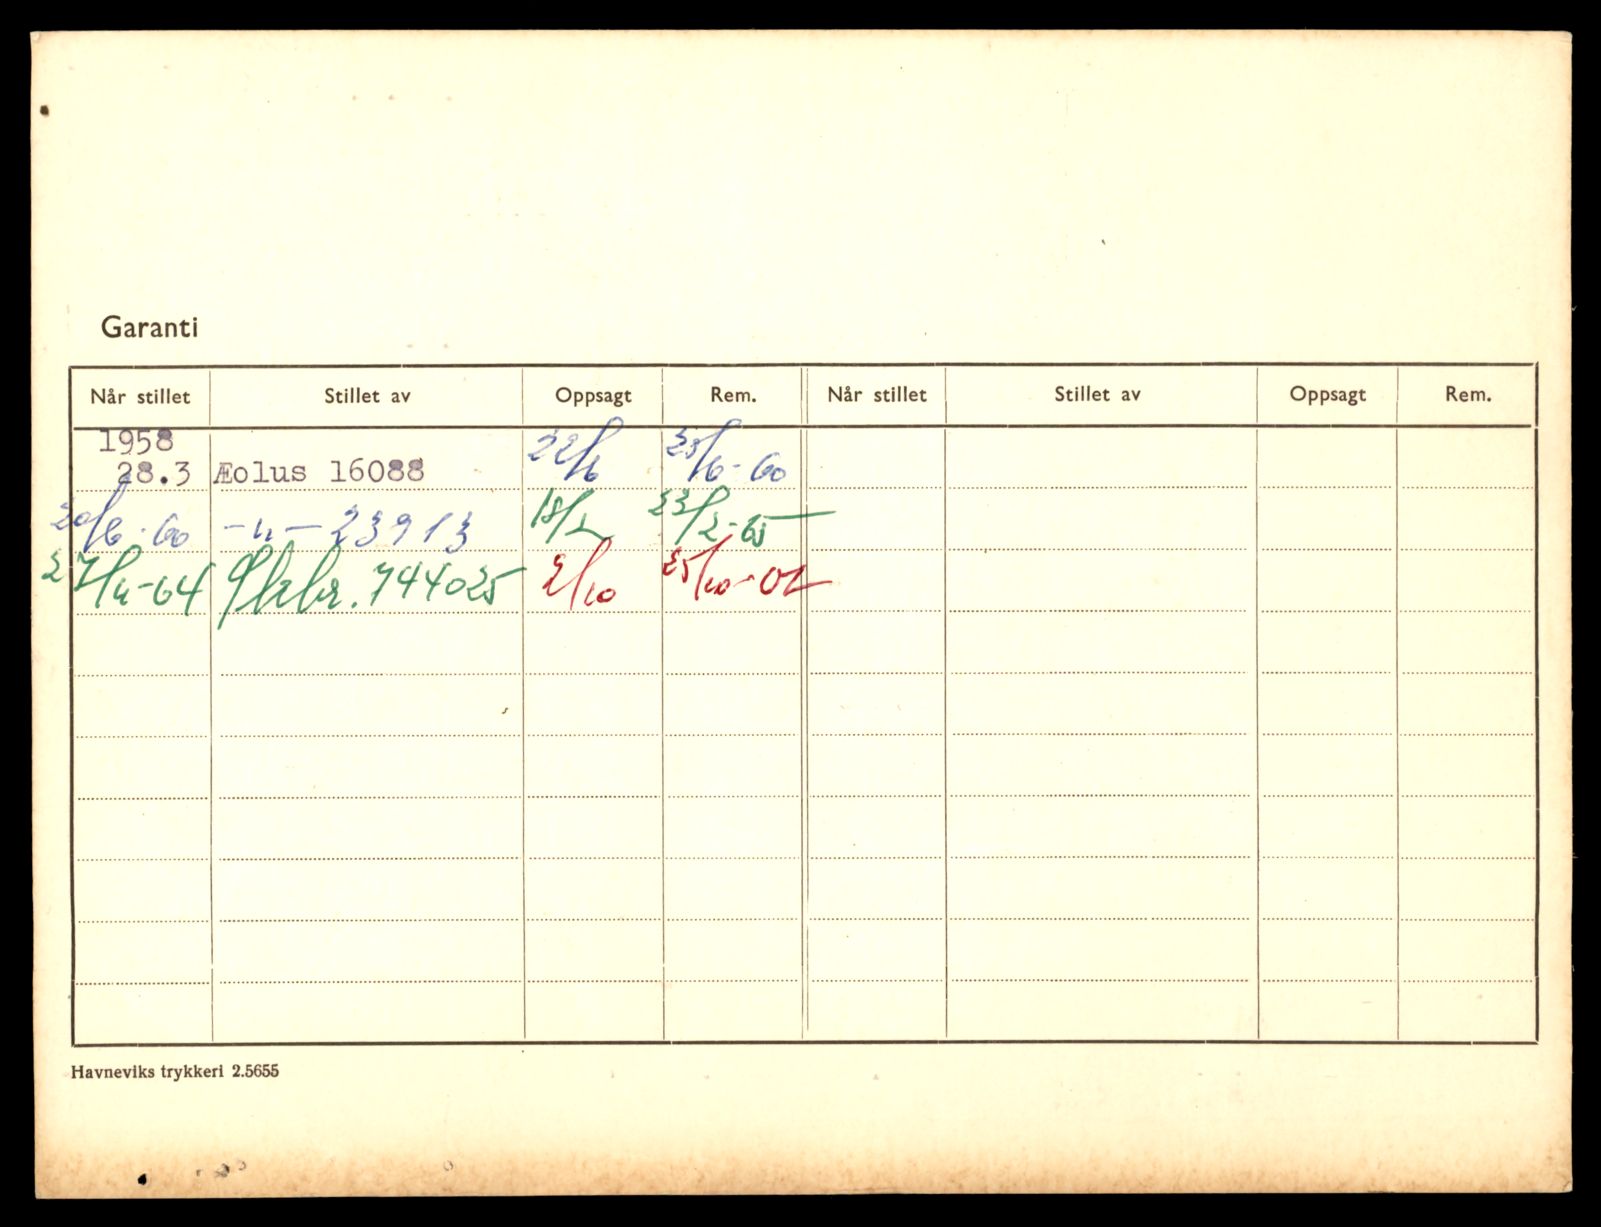 Garanti
Når stillet Stillet av Oppsagt Rem. Når stillet Stillet av Oppsagt Rem.
1958
28.3 Æolus 16088 22/6 25/6-60
20/6-60 -"- 23913 18/2 22/2-65
27/4-64 744025 2/10 25/10-
Havneviks trykkeri 2.5655